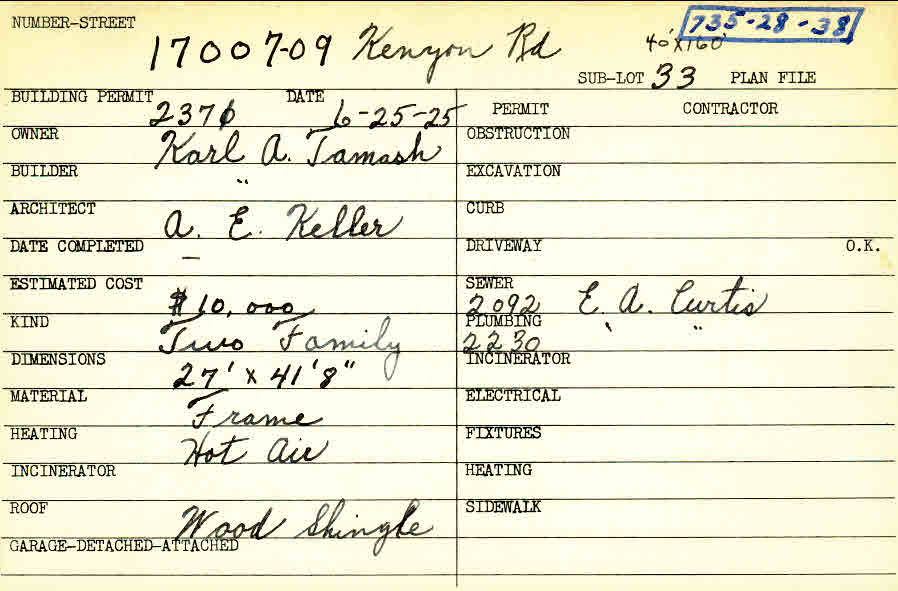 NUMBER-STREET
735-28-38
17007-09 Kenyon Rd 40'x160'
SUB-LOT 33 PLAN FILE
BUILDING PERMIT DATE
2376 6-25-25
PERMIT CONTRACTOR
OWNER Karl A. Tamash
OBSTRUCTION
BUILDER "
EXCAVATION
ARCHITECT A. E. Keller
CURB
DATE COMPLETED —
DRIVEWAY O.K.
ESTIMATED COST $10,000
SEWER 2092 E. A. Curtis
KIND Two Family
PLUMBING 2230 " "
DIMENSIONS 27' x 41'8"
INCINERATOR
MATERIAL Frame
ELECTRICAL
HEATING Hot Air
FIXTURES
INCINERATOR
HEATING
ROOF Wood Shingle
SIDEWALK
GARAGE-DETACHED-ATTACHED